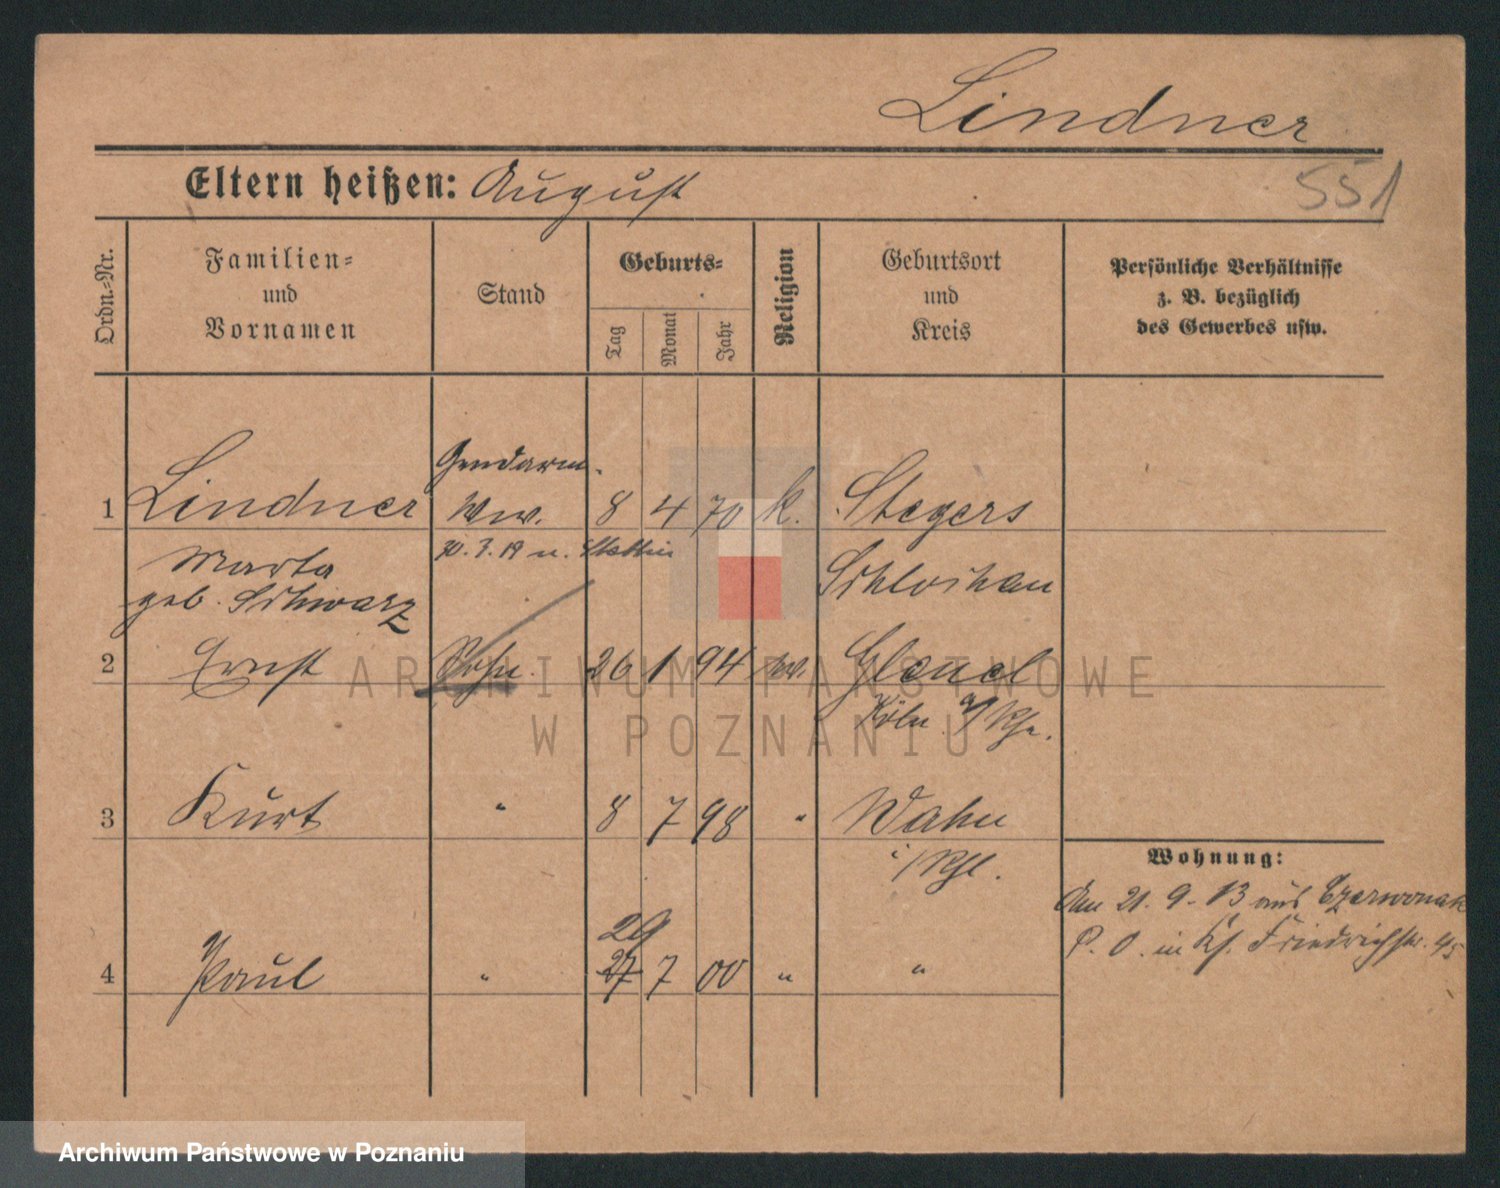 Lindner
Eltern heißen: August
551
Ordn.-Nr.
Familien-
und
Vornamen
Stand
Geburts-
Tag
Monat
Jahr
Religion
Geburtsort
und
Kreis
Persönliche Verhältnisse
z. B. bezüglich
des Gewerbes usw.
Gendarm.
1 Lindner Ww. 8 4 70 k. Stegers
30. 3. 19 n. Stettin
Marta
Schlochau
geb. Schwarz
2 Ernst Sohn 26 1 94
Köln a/Rh.
3 Kurt " 8 7 98 " Wahn
i/Rhl.
Wohnung:
Am 21. 9. 13 aus Czerwonak
P. O. in Friedrichstr. 45
29
4 Paul " 27 7 00 " "
ARCHIWUM PAŃSTWOWE
W POZNANIU
Archiwum Państwowe w Poznaniu